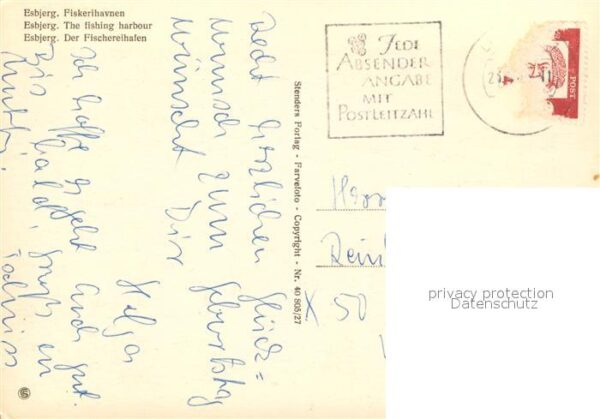 Esbjerg, Fiskerihavnen
Esbjerg. The fishing harbour
Esbjerg. Der Fischereihafen
JEDE
ABSENDER
ANGABE
MIT
POSTLEITZAHL
POST
Stenders Forlag - Farvefoto - Copyright - Nr. 40 805/27
Recht herzlichen Glück=
wunsch zum Geburtstag
wünscht Dir
Helga
Ich hoffe es geht Euch gut.
Bis bald, Gruß an
Herr
X 50
privacy protection
Datenschutz